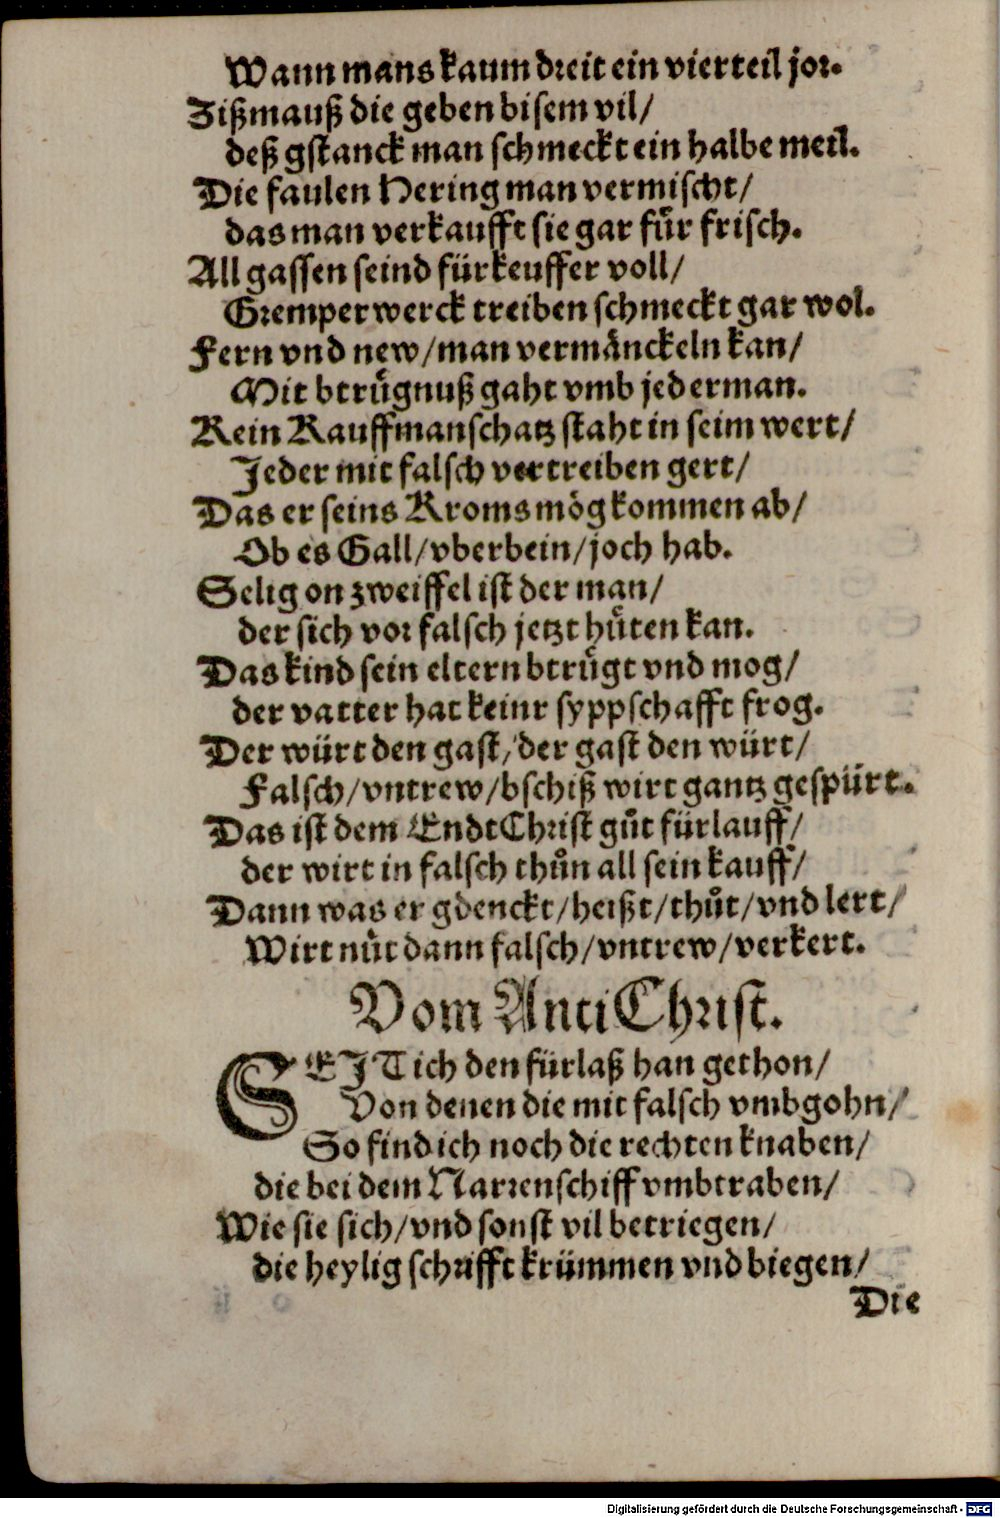 Wann mans kaum dreit ein vierteil jor.
Zißmauß die geben bisem vil/
deß gstanck man schmeckt ein halbe meil.
Die faulen Hering man vermischt/
das man verkaufft sie gar fuͤr frisch.
All gassen seind fürkeuffer voll/
Gremperwerck treiben schmeckt gar wol.
Fern vnd new/man vermänckeln kan/
Mit btruͤgnuß gaht vmb jederman.
Kein Kauffmanschatz staht in seim wert/
Jeder mit falsch vertreiben gert/
Das er seins Kroms mög kommen ab/
Ob es Gall/vberbein/joch hab.
Selig on zweiffel ist der man/
der sich vor falsch jetzt huͤten kan.
Das kind sein eltern btruͤgt vnd mog/
der vatter hat keinr syppschafft frog.
Der würt den gast/der gast den würt/
Falsch/vntrew/bschiß wirt gantz gespürt.
Das ist dem EndtChrist guͦt fürlauff/
der wirt in falsch thuͦn all sein kauff/
Dann was er gdenckt/heißt/thuͦt/vnd lert/
Wirt nuͤt dann falsch/vntrew/verkert.
Vom AntiChrist.
SEJT ich den fürlaß han gethon/
Von denen die mit falsch vmbgohn/
So find ich noch die rechten knaben/
die bei dem Narrenschiff vmbtraben/
Wie sie sich/vnd sonst vil betriegen/
die heylig schrifft krümmen vnd biegen/
Die
Digitalisierung gefördert durch die Deutsche Forschungsgemeinschaft - DFG